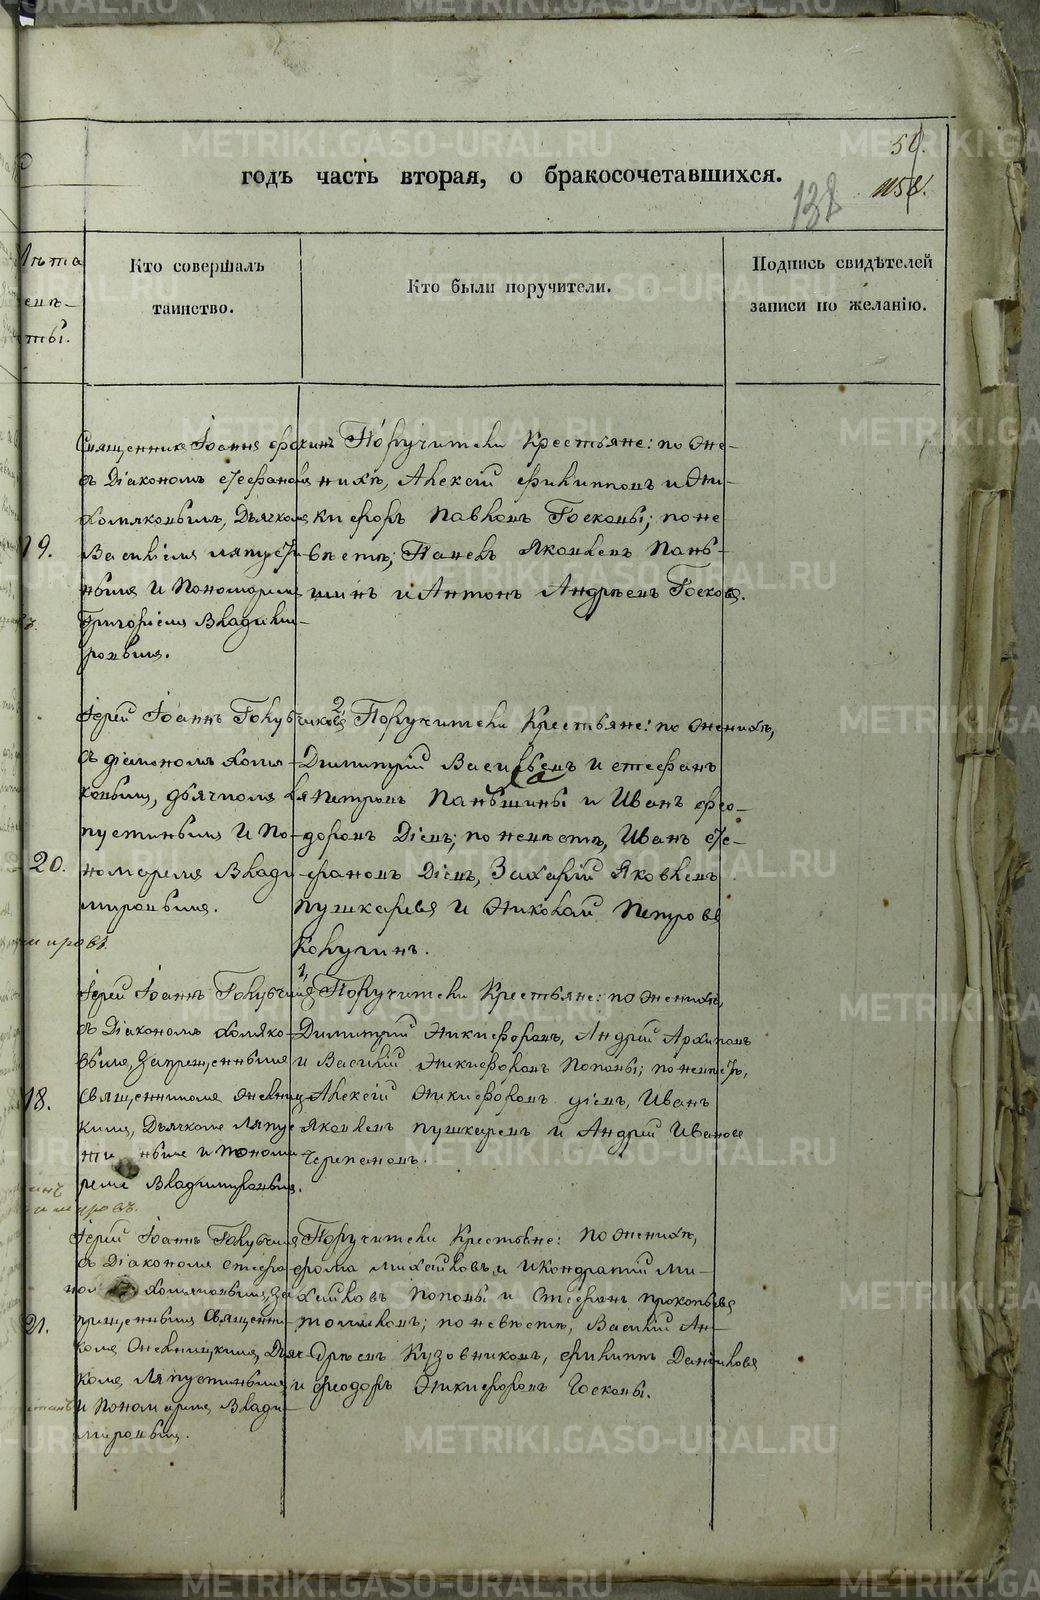 годъ часть вторая, о бракосочетавшихся.
50.
1158.
138
Лѣта
Кто совершалъ
таинство.
Кто были поручители.
Подпись свидѣтелей
записи по желанію.
19.
Священникъ Іоаннъ
съ Діакономъ Стефаномъ
Хомяковымъ, Дьячкомъ
Василіемъ Ляпусти-
нымъ и Пономаремъ
Григоріемъ Влади-
мровымъ.
Поручители Крестьяне: по же-
нихѣ, Алексій Филипповъ и Ни-
кифоръ Павловъ Госковы; по не-
вѣстѣ; Павелъ Яковлевъ Пань-
шинъ и Антонъ Андреевъ Госковъ.
20.
Іерей Іоаннъ Голубчиковъ
съ діакономъ Хомя-
ковымъ, дьячкомъ Ля
пустинымъ и По-
номаремъ Влади
мировымъ.
2, Поручители Крестьяне: по женихѣ,
Димитрій Васильевъ и Стефанъ
Петровъ Паньшины и Иванъ Фео-
доровъ Діевъ; по невѣстѣ, Иванъ Сте-
фановъ Діевъ, Захарій Яковлевъ
Пушкаревъ и Николай Петровъ
18.
Іерей Іоаннъ Голубчиковъ
съ Діакономъ Хомяко-
вымъ, запрещеннымъ
Священникомъ
Дьячкомъ Ляпус
тинымъ и Понома
ремъ Владимировымъ.
1, Поручители Крестьяне: по женихѣ,
Димитрій Никифоровъ, Андрей Архиповъ
и Василій Никифоровъ Поповы; по невѣстѣ,
Алексій Никифоровъ Діевъ, Иванъ
Яковлевъ Пушкаревъ и Андрей Ивановъ
Черепановъ.
21.
Іерей Іоаннъ Голубчиковъ
съ Діакономъ Стефа
номъ Хомяковымъ, за
прещеннымъ Священни-
комъ Дьяч-
комъ Ляпустинымъ
и Пономаремъ Влади-
мировымъ.
Поручители Крестьяне: по женихѣ,
Фома Михайловъ и Кондратій Ми-
хайловъ Поповы и Стефанъ Прокопьевъ
по невѣстѣ, Василій Ан-
дреевъ Кузовниковъ, Филиппъ Даниловъ
и Феодоръ Никифоровъ Госковы.
METRIKI.GASO-URAL.RU